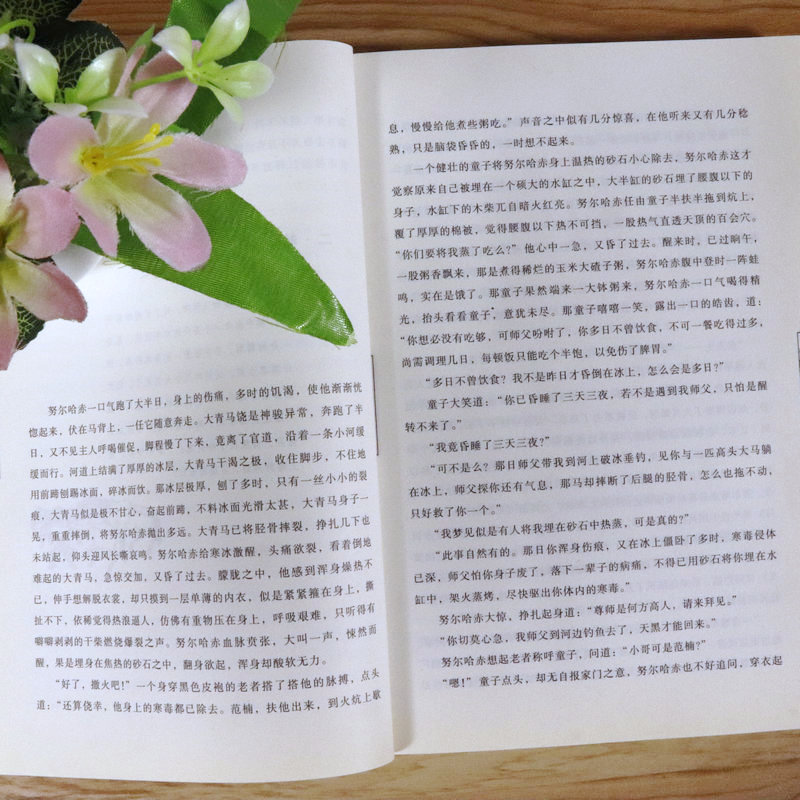 努尔哈赤一口气跑了大半日，身上的伤痛，多时的饥渴，使他渐渐恍
惚起来，伏在马背上，一任它随意奔走。大青马饶是神骏异常，奔跑了半
日，又不见主人呼喝催促，脚程慢了下来，竟离了官道，沿着一条小河缓
缓而行。河道上结满了厚厚的冰层，大青马干渴之极，收住脚步，不住地
用前蹄刨踢冰面，碎冰而饮。那冰层极厚，刨了多时，只有一丝小小的裂
痕，大青马似是极不甘心，奋起前蹄，不料冰面光滑太甚，大青马身子一
晃，重重摔倒，将努尔哈赤抛出多远。大青马已将胫骨摔裂，挣扎几下也
未站起，仰头迎风长嘶哀鸣。努尔哈赤给寒冰激醒，头痛欲裂，看着倒地
难起的大青马，急惊交加，又昏了过去。朦胧之中，他感到浑身燥热不
已，伸手想解脱衣裳，却只摸到一层单薄的内衣，似是紧紧箍在身上，撕
扯不下，依稀觉得热浪逼人，仿佛有重物压在身上，呼吸艰难，只听得有
噼噼剥剥的干柴燃烧爆裂之声。努尔哈赤血脉贲张，大叫一声，悚然而
醒，果是埋身在焦热的砂石之中，翻身欲起，浑身却酸软无力。
“好了，撤火吧！”一个身穿黑色皮袍的老者搭了搭他的脉搏，点头
道：“还算侥幸，他身上的寒毒都已除去。范楠，扶他出来，到火炕上歇
息，慢慢给他煮些粥吃。”声音之中似有几分惊喜，在他听来又有几分稔
熟，只是脑袋昏昏的，一时想不起来。
一个健壮的童子将努尔哈赤身上温热的砂石小心除去，努尔哈赤这才
觉察原来自己被埋在一个硕大的水缸之中，大半缸的砂石埋了腰腹以下的
身子，水缸下的木柴兀自暗火红亮。努尔哈赤任由童子半扶半拖到炕上，
覆了厚厚的棉被，觉得腰腹以下热不可挡，一股热气直透天顶的百会穴。
“你们要将我蒸了吃么？”他心中一急，又昏了过去。醒来时，已过晌午，
一股粥香飘来，那是煮得稀烂的玉米大碴子粥，努尔哈赤腹中登时一阵蛙
鸣，实在是饿了。那童子果然端来一大钵粥来，努尔哈赤一口气喝得精
光，抬头看看童子，意犹未尽。那童子嘻嘻一笑，露出一口的皓齿，道：
“你想必没有吃够，可师父吩咐了，你多日不曾饮食，不可一餐吃得过多，
尚需调理几日，每顿饭只能吃个半饱，以免伤了脾胃。”
“多日不曾饮食？我不是昨日才昏倒在冰上，怎么会是多日？”
童子大笑道：“你已昏睡了三天三夜，若不是遇到我师父，只怕是醒
转不来了。”
“我竟昏睡了三天三夜？”
“可不是么？那日师父带我到河上破冰垂钓，见你与一匹高头大马躺
在冰上，师父探你还有气息，那马却摔断了后腿的胫骨，怎么也拖不动，
只好救了你一个。”
“我梦见似是有人将我埋在砂石中热蒸，可是真的？”
“此事自然有的。那日你浑身伤痕，又在冰上僵卧了多时，寒毒侵体
已深，师父怕你身子废了，落下一辈子的病痛，不得已用砂石将你埋在水
缸中，架火蒸烤，尽快驱出你体内的寒毒。”
努尔哈赤大惊，挣扎起身道：“尊师是何方高人，请来拜见。”
“你切莫心急，我师父到河边钓鱼去了，天黑才能回来。”
努尔哈赤想起老者称呼童子，问道：“小哥可是范楠？”
“嗯！”童子点头，却无自报家门之意，努尔哈赤也不好追问，穿衣起